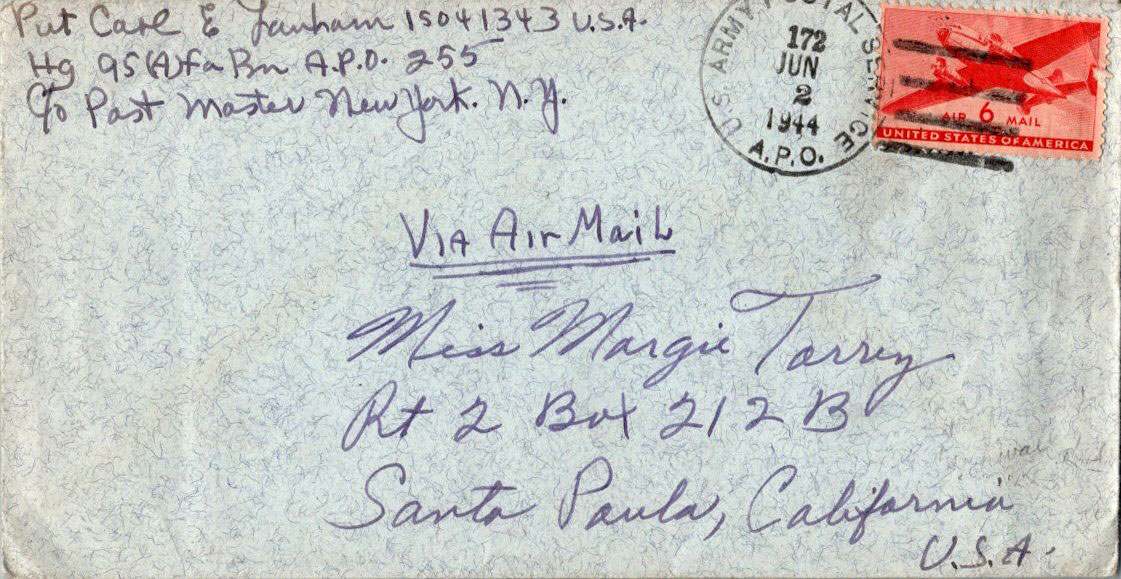 Pvt Carl E Lanham 15041343 U.S.A.
Hq 95 (A) Fa Bn A.P.O. 255
C/o Post Master New York. N.Y.
U.S. ARMY POSTAL SERVICE
172
JUN
2
1944
A.P.O.
AIR 6 MAIL
UNITED STATES OF AMERICA
VIA AIr MaiL
Miss Margie Torrey
Rt 2 Box 212 B
Santa Paula, California
U.S.A.